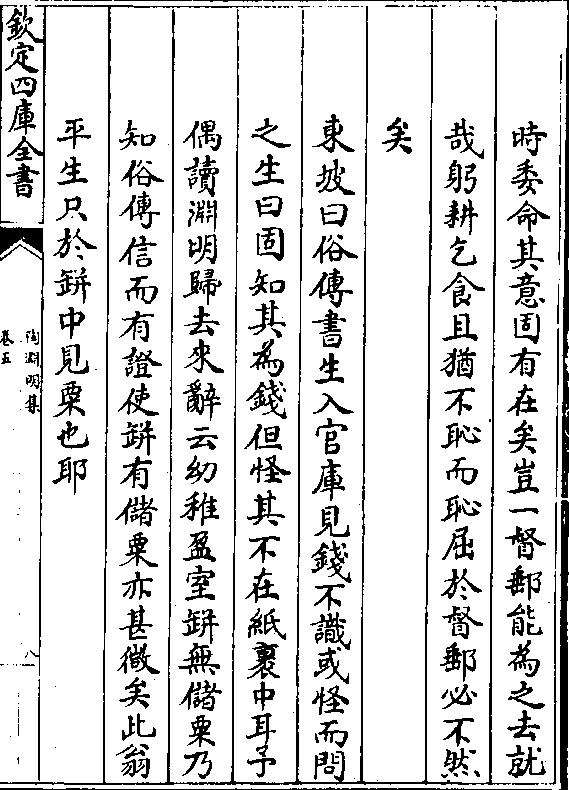 時委命其意固有在矣豈一督郵能為之去就
哉躬耕乞食且猶不恥而恥屈於督郵必不然
矣
東坡曰俗傳書生入官庫見錢不識或怪而問
之生曰固知其為錢但怪其不在紙裹中耳予
偶讀淵明歸去來辭云幼稚盈室缾無儲粟乃
知俗傳信而有證使缾有儲粟亦甚微矣此翁
平生只於缾中見粟也耶
欽定四庫全書
陶淵明集
卷五
八